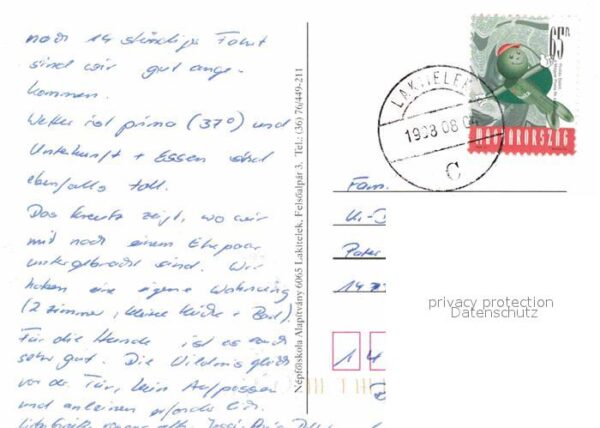 nach 14 stündige Fahrt
sind wir gut ange-
kommen.
Wetter ist prima (37°) und
Unterkunft + Essen sind
ebenfalls toll.
Das Kreutz zeigt, wo wir
mit noch einem Ehepaar
untergebracht sind. Wir
haben eine eigene Wohnung
(2 Zimmer, kleine Küche + Bad).
Für die Hunde ist es auch
sehr gut. Die Wildnis gleich
vor der Tür, kein Aufpassen
und anleinen erforderlich.
Népfőiskola Alapítvány 6065 Lakitelek, Felsőalpár 3. Tel.: (36) 76/449-211
65Ft
MAGYARORSZÁG
LAKITELEK
1998 08 0
C
Fam.
Peter
147
1 4
privacy protection
Datenschutz